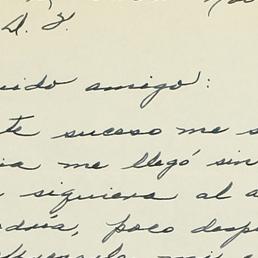 D. F.
uido amigo:
te suceso me s
ia me llegó sin
siguiera al a
dría, poco desp